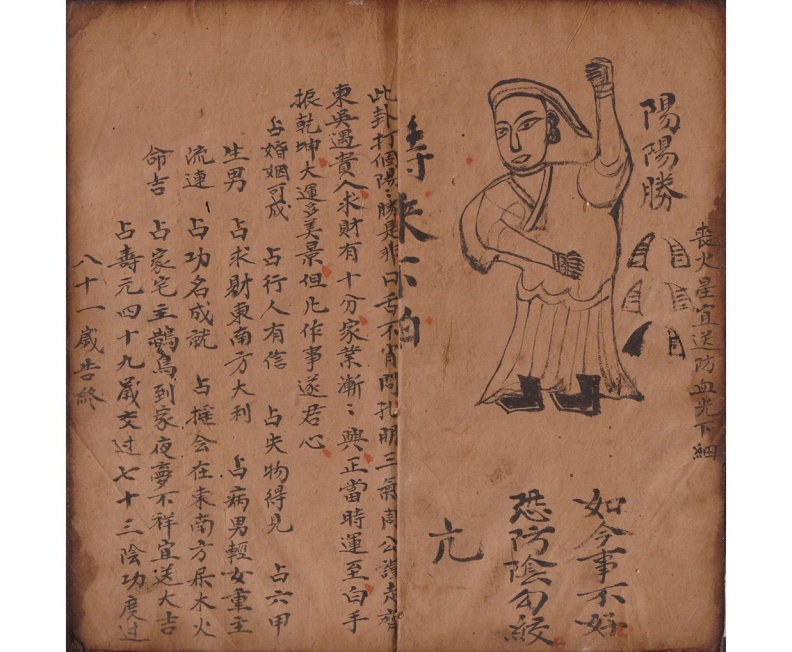 喪火星宜送防血光下細
陽陽勝
如今事不好
恐防陰勾絞
亢
来不怕
此卦打個陽〻勝是非口舌不肯問孔明三氣周公謹走齊
東吳遇貴人求財有十分家業漸〻興正當時運至白手
振乾坤大運多美景但凡作事遂君心
占婚姻可成 占行人有信 占失物得見 占六甲
生男 占求財東南方大利 占病男輕女重主
流連 占功名成就 占摧会在東南方木火
命吉 占家宅主鵲鳥到家夜夢不祥宜送大吉
占壽元四十九歲交过七十三陰功度过
八十一歲告終